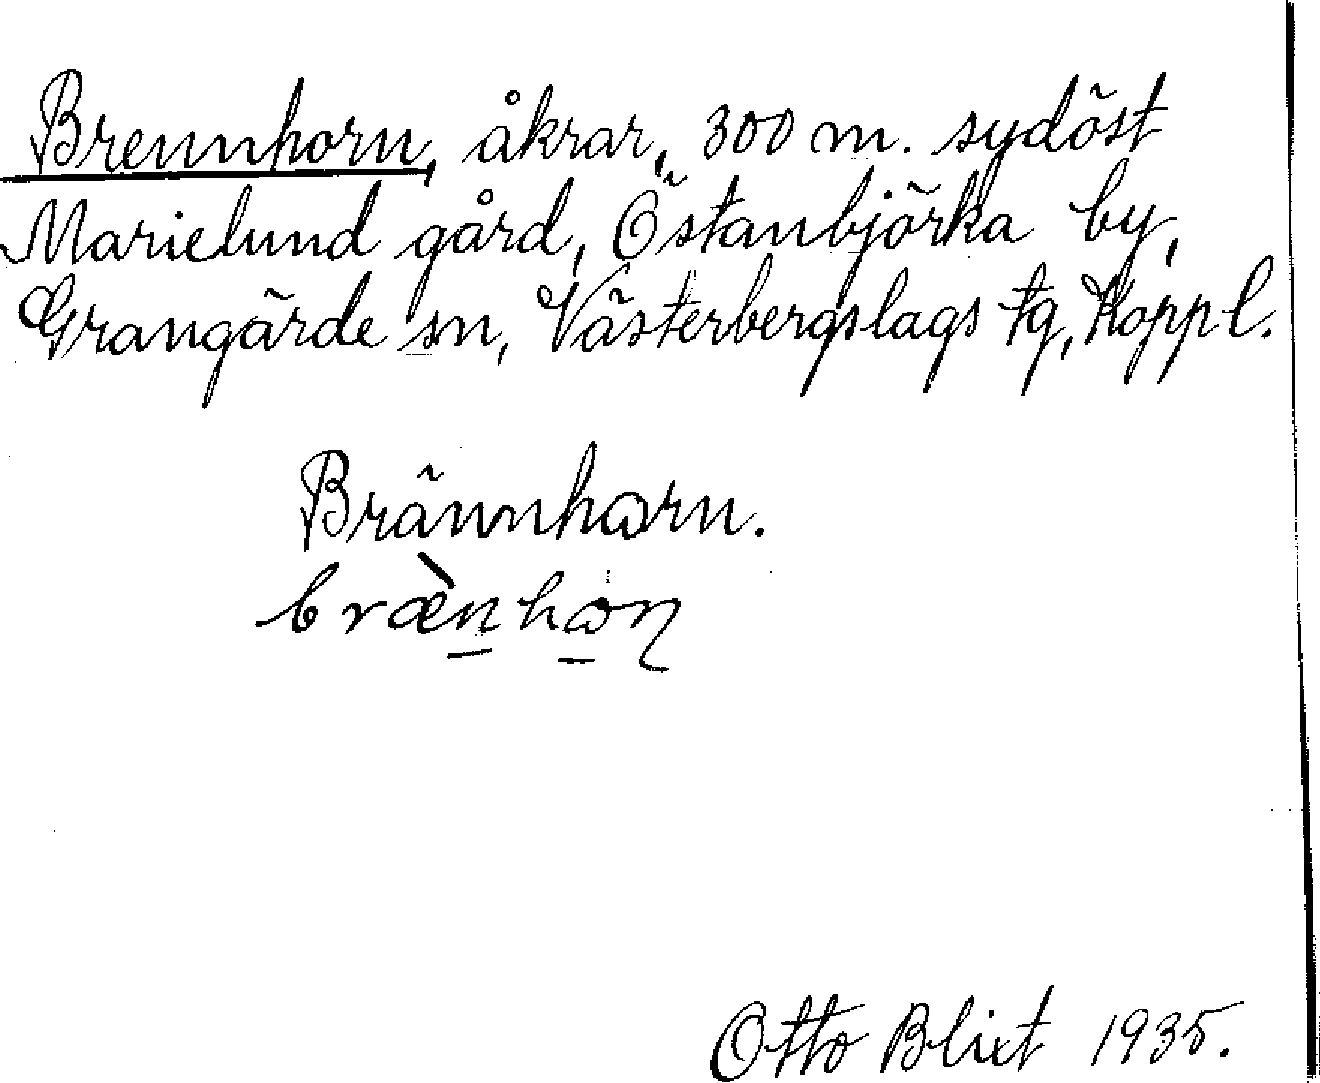 Brennhorn, åkrar, 300 m. sydöst
Marielund gård, Östanbjörka by,
Grangärde sn, Västerbergslags tg, Koppl.
Brännhorn.
bræ̀nhɷɳ
Otto Blixt 1935.